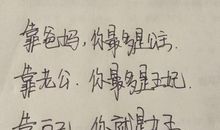 靠爸妈，你最多是公主.
靠老公，你最多是王妃.
靠自己，你就是女王